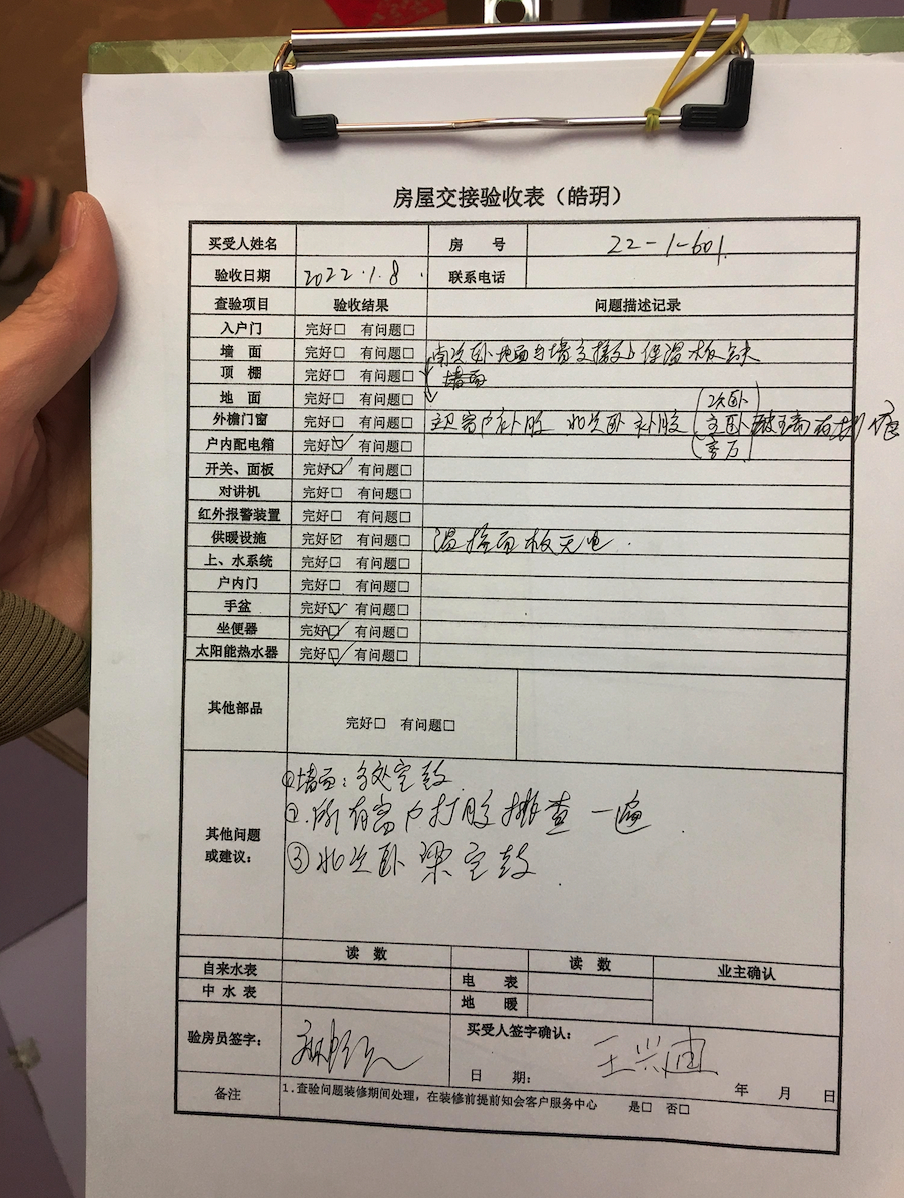 房屋交接验收表（皓玥）
买受人姓名 房 号 22-1-601
验收日期 2022.1.8. 联系电话
查验项目 验收结果 问题描述记录
入户门 完好□ 有问题□
墙 面 完好□ 有问题□ 南次卧地面与墙交接处保温板缺
顶 棚 完好□ 有问题□ 墙面
地 面 完好□ 有问题□ 次卧
外檐门窗 完好□ 有问题□ 窗户补胶 北次卧补胶 主卧 玻璃有划痕
户内配电箱 完好☑ 有问题□ 客厅
开关、面板 完好☑ 有问题□
对讲机 完好□ 有问题□
红外报警装置 完好□ 有问题□
供暖设施 完好☑ 有问题□ 温控面板无电.
上、水系统 完好□ 有问题□
户内门 完好□ 有问题□
手盆 完好☑ 有问题□
坐便器 完好☑ 有问题□
太阳能热水器 完好☑ 有问题□
其他部品 完好□ 有问题□
其他问题
或建议：
①墙面：多处空鼓
2.所有窗户打胶排查一遍.
③北次卧梁空鼓.
读 数 读 数 业主确认
自来水表 电 表
中 水 表 地 暖
验房员签字： 买受人签字确认：
王兴迪
日 期： 年 月 日
备注 1.查验问题装修期间处理，在装修前提前知会客户服务中心 是□ 否□